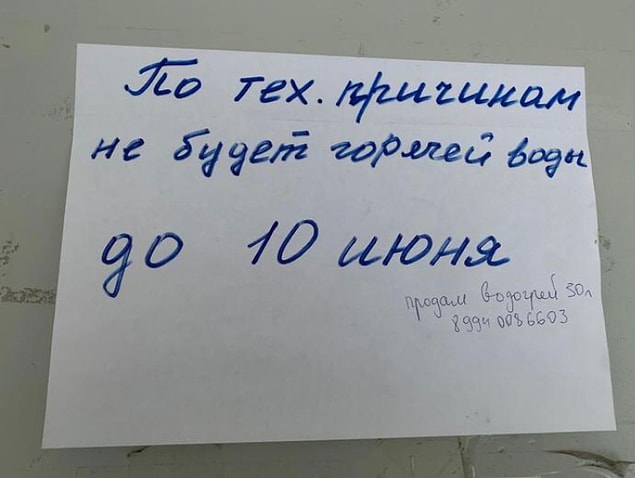 По тех. причинам
не будет горячей воды
до 10 июня
продам водогрей 30л
8994 0086603